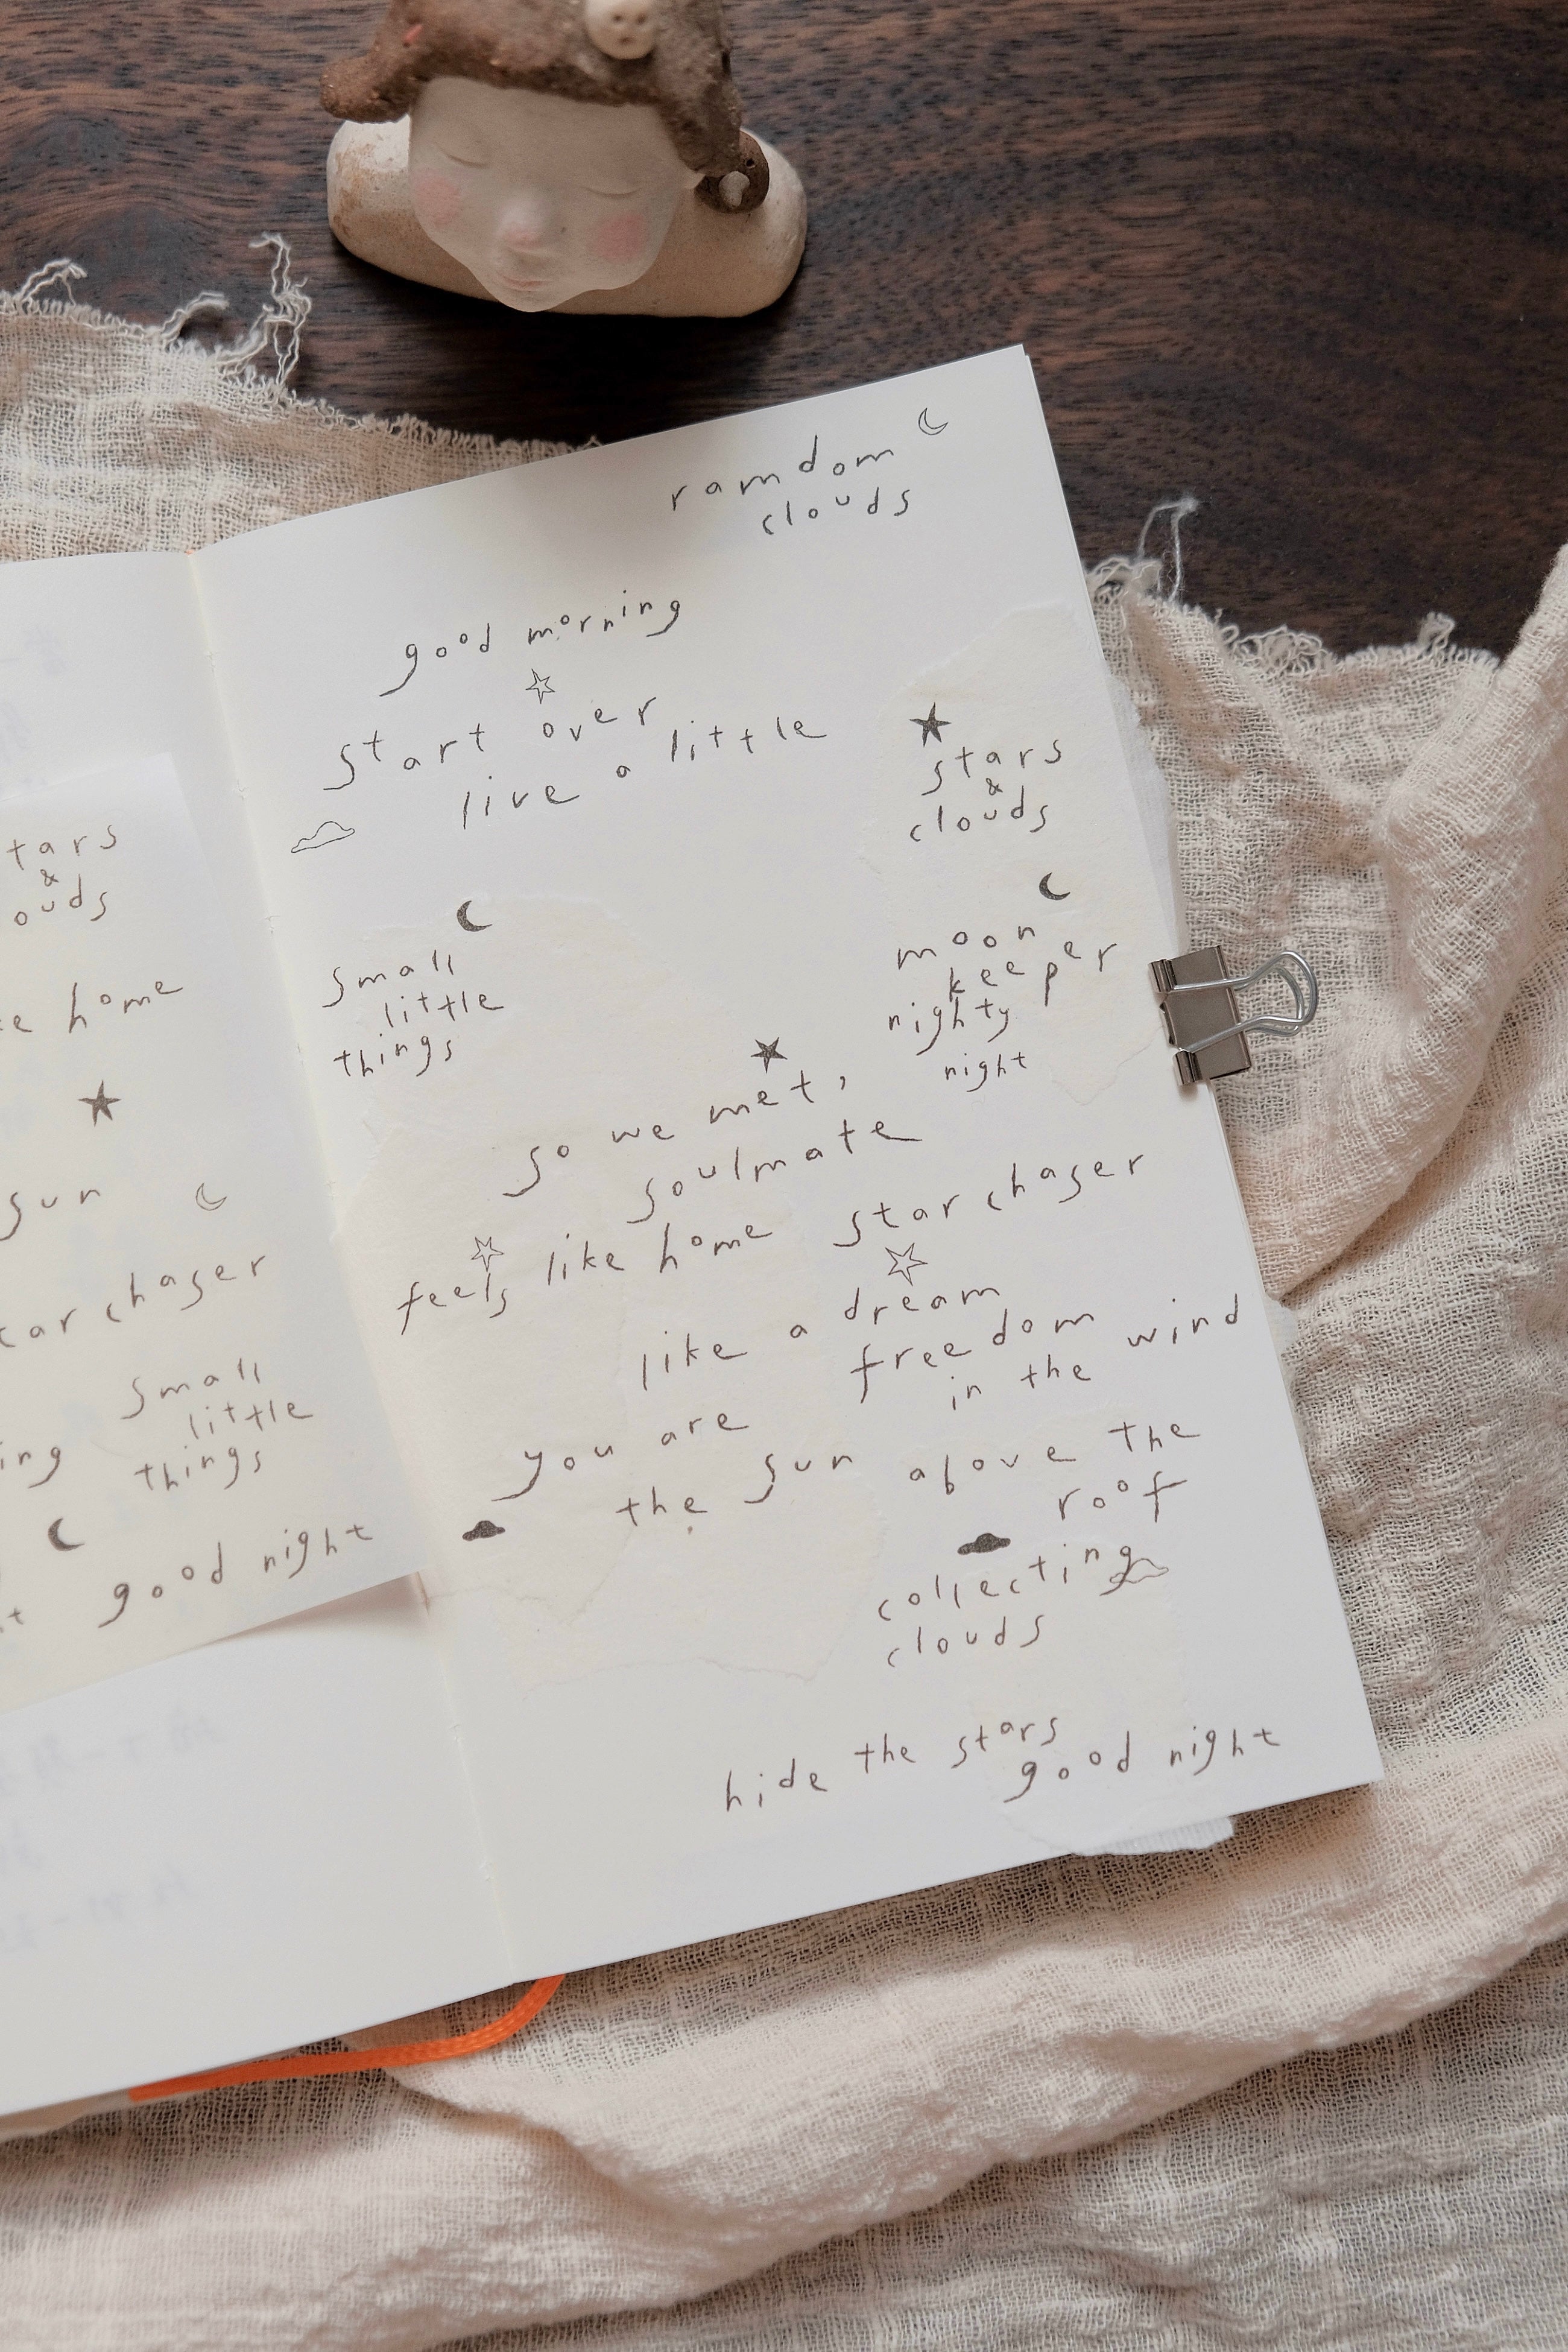 tars
&
ouds
home
sun
tar chaser
small
little
things
ing
good night
ramdom
clouds
good morning
start over
live a little
stars
&
clouds
small
little
things
moon
keeper
nighty
night
so we met,
soulmate
feels like home
star chaser
like a dream
freedom
in the wind
you are
the sun above the
roof
collecting
clouds
hide the stars
good night